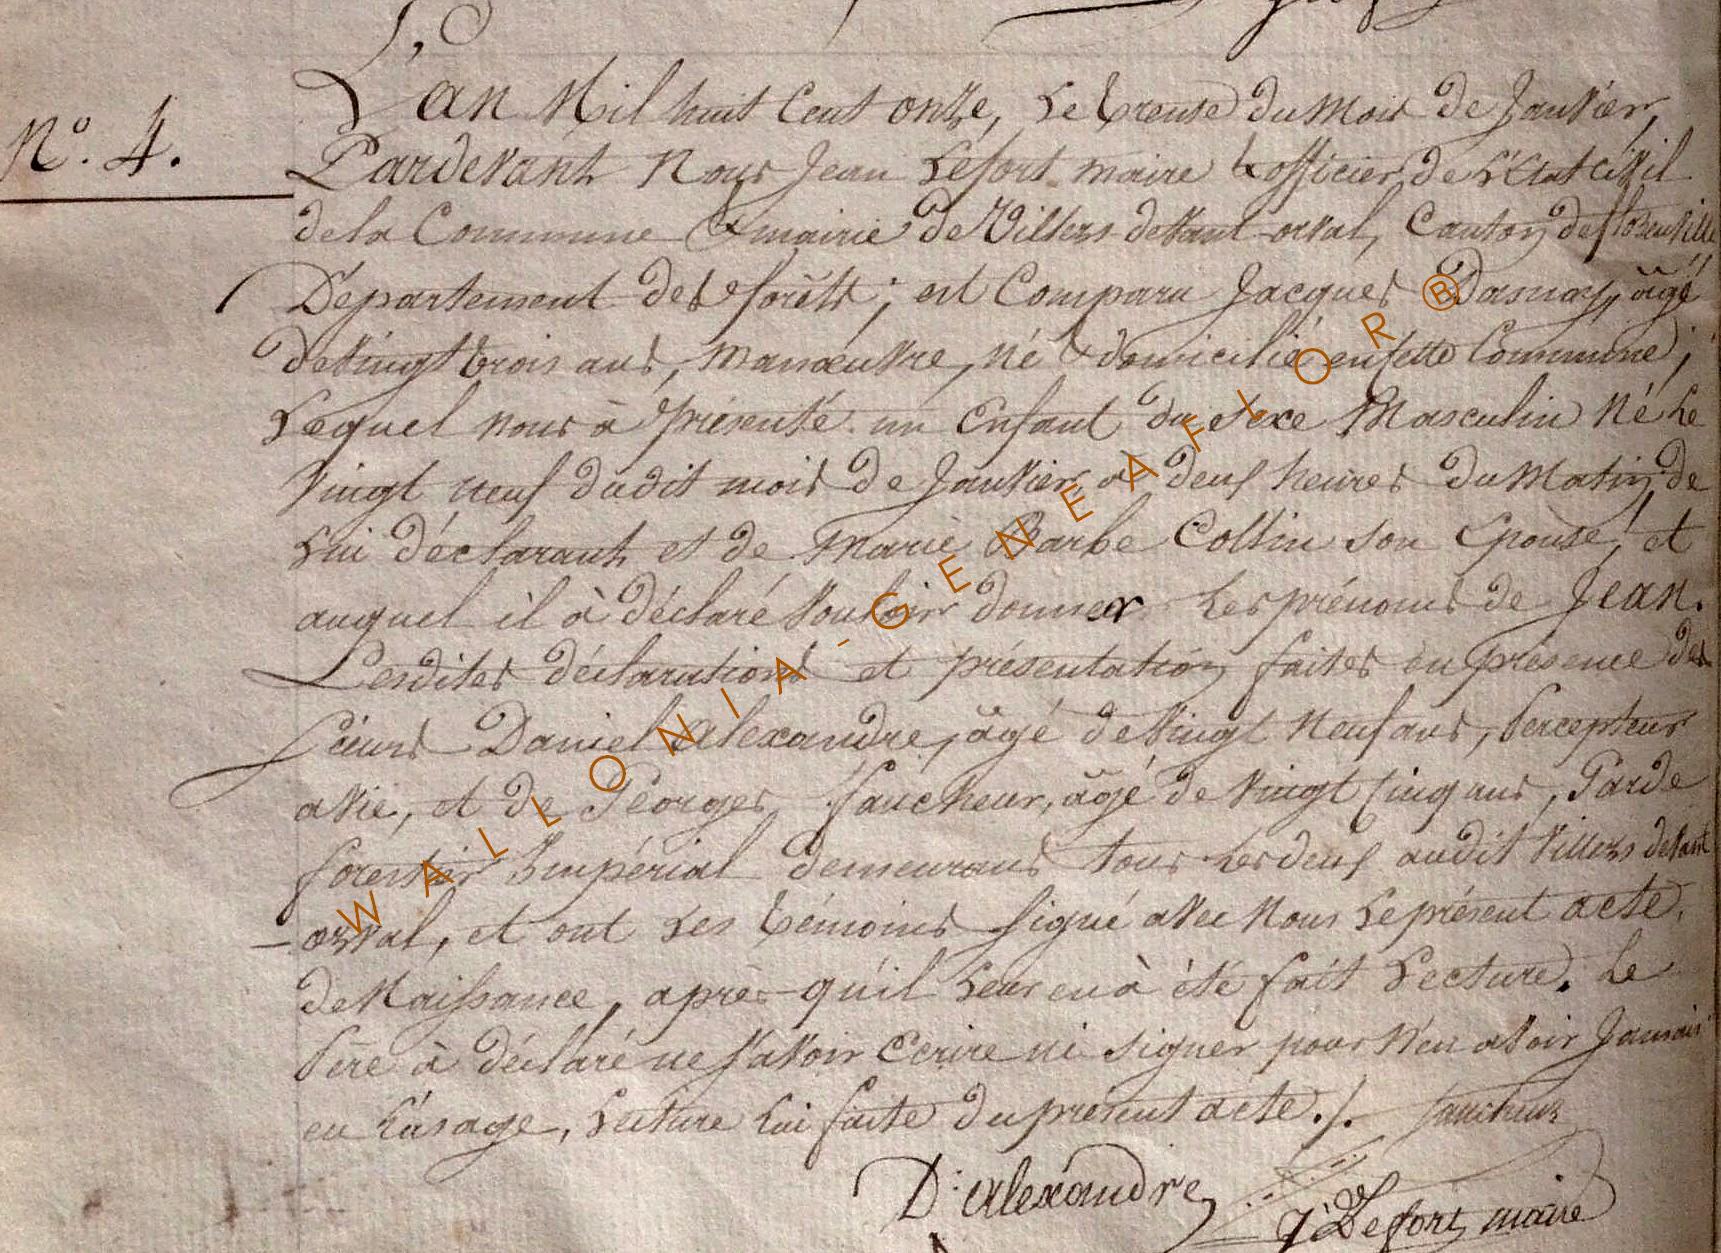 N.º 4.
L'an Mil huit Cent onze, le trente du mois de Janvier,
Pardevant Nous Jean Lefort maire & officier de L'Etat civil
de la Commune & mairie de Villers devant-orval, Canton de florenville
Département des forêts; est Comparu Jacques Dasnoy, âgé
de vingt trois ans, manœuvre, né & domicilié en cette Commune;
Lequel nous à présenté un Enfant du Sexe Masculin Né le
vingt neuf dudit mois de Janvier à deux heures du Matin, de
lui déclarant et de Marie Barbe Collin son Epouse, et
auquel il à déclaré vouloir donner les prénoms de Jean.
Lesdites déclarations et présentation faites en présence des
sieurs Daniel Alexandre, âgé de vingt neuf ans, percepteur
à vie, et de Georges faucheur, âgé de vingt cinq ans, Garde
forestier Impérial demeurans tous les deux audit Villers devant
-orval, et ont les témoins signé avec nous le présent acte
de Naissance, après qu'il leur en à été fait Lecture. Le
père à déclaré ne savoir Ecrire ni signer pour n'en avoir Jamais
eu l'usage, lecture lui faite du present acte ./. faucheur
D: Alexandre J Lefort maire
WALLONIA-GENEAFLOR®